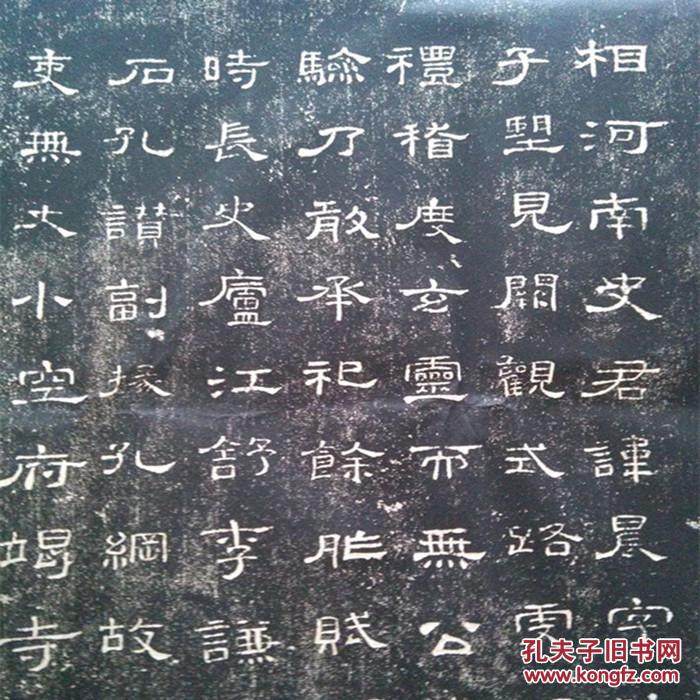 相河南史君諱晨字
子望見闕觀式路虔
禮稽度玄靈而無公
驗乃敢承祀餘胙賦
時長史廬江舒李謙
石孔讚副掾孔綱故
吏無大小空府竭寺
孔夫子旧书网
www.kongfz.com